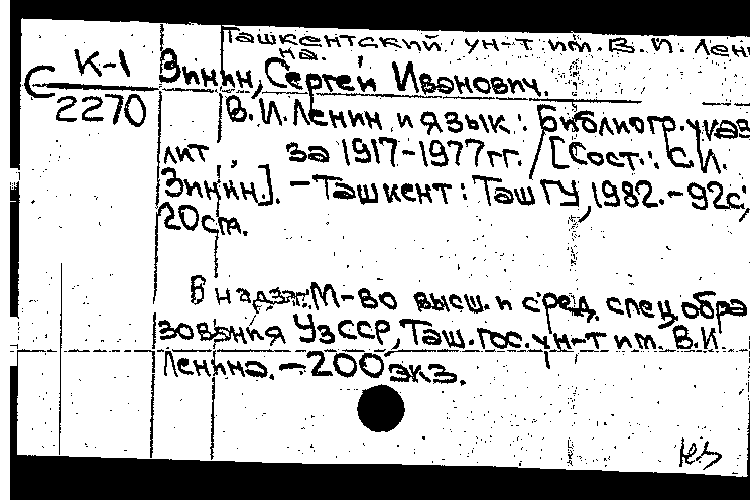 Ташкентский ун-т им. В. И. Лени
на.
К-1
С
2270
Зинин, Сергей Иванович.
В.И.Ленин и язык: Библиогр. указ
лит., за 1917-1977гг. / [Сост.: С.И.
Зинин.]. - Ташкент: ТашГУ, 1982. - 92с;
20см.
В надзаг: М-во высш. и сред. спец. обра
зования УзССР, Таш. гос. ун-т им. В.И.
Ленина. - 200 экз.